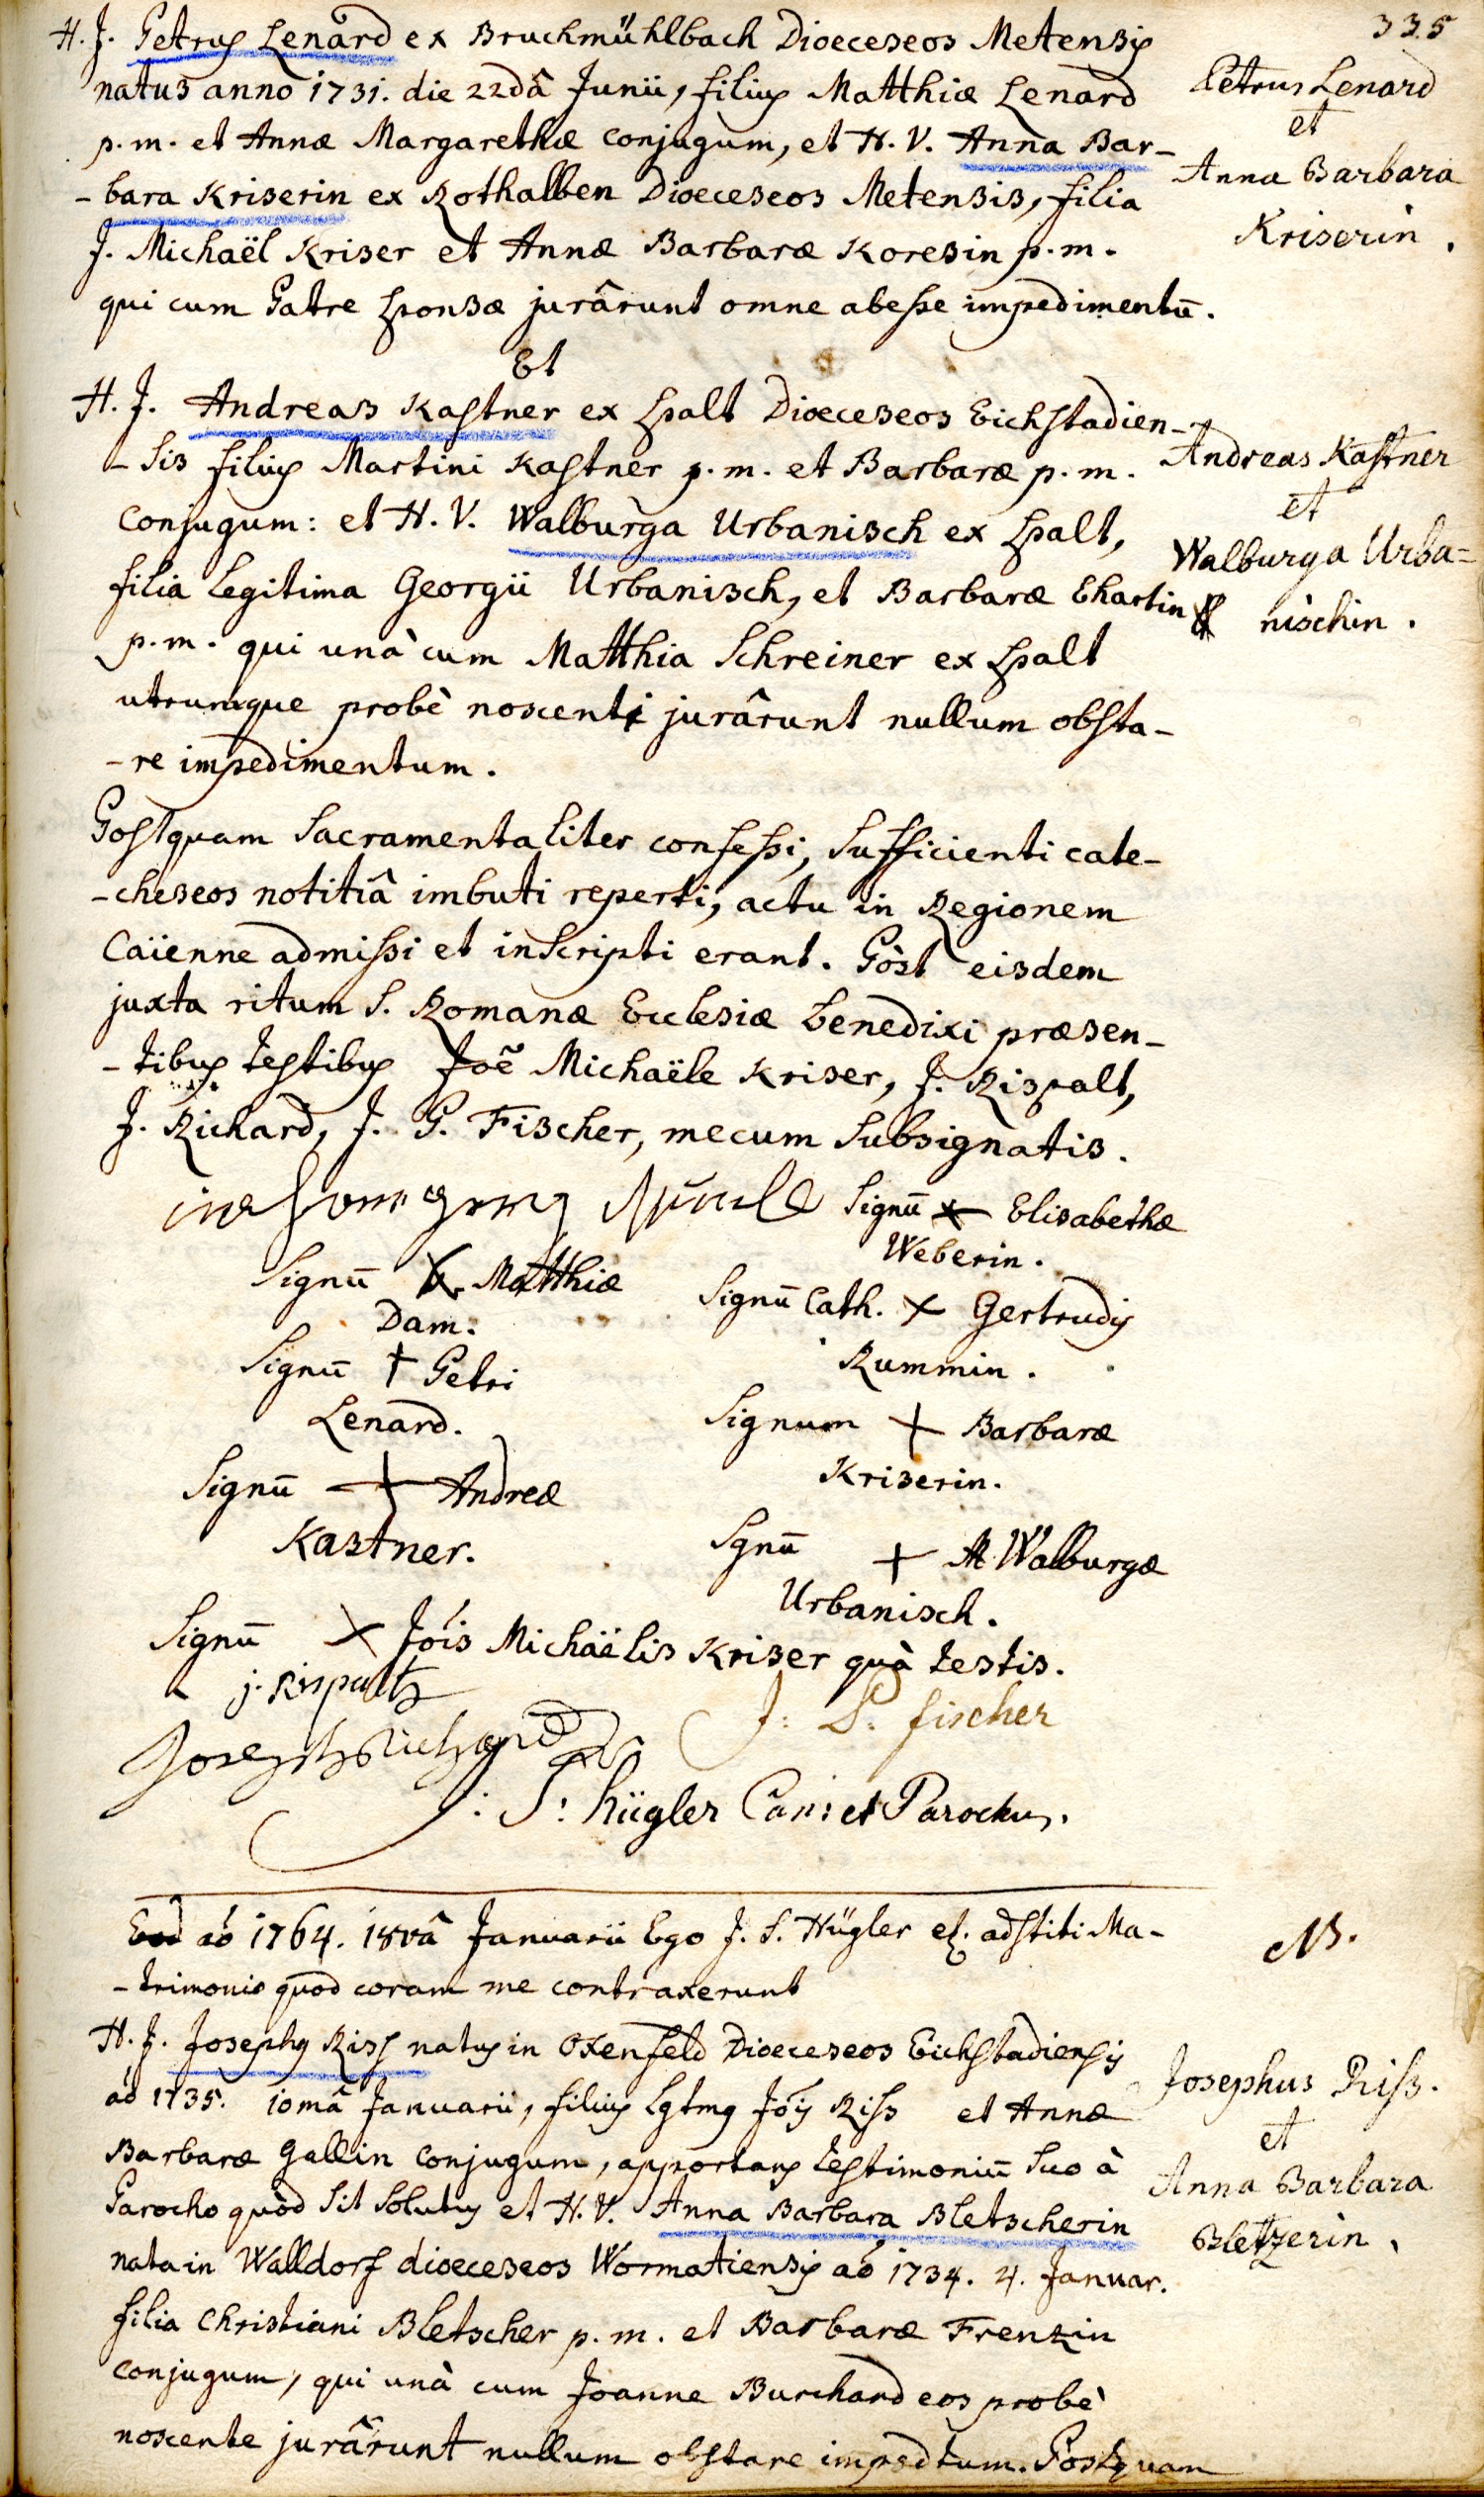 335
H. J. Petrus Lenard ex Bruchmühlbach Dioeceseos Metensis
natus anno 1731. die 22dâ Junii, filius Matthiæ Lenard
p. m. et Annæ Margarethæ conjugum, et H. V. Anna Bar-
-bara Kriserin ex Rothalben Dioeceseos Metensis, filia
J. Michaël Kriser et Annæ Barbaræ Koresin p. m.
qui cum Patre sponsæ jurârunt omne abesse impedimentū.
Petrus Lenard
et
Anna Barbara
Kriserin.
Et
H. J. Andreas Kastner ex Spalt Dioeceseos Eichstadien-
-sis filius Martini Kastner p. m. et Barbaræ p. m.
conjugum: et H. V. Walburga Urbanisch ex Spalt,
filia legitima Georgii Urbanisch, et Barbaræ Ehartin
p. m. qui unà cum Matthia Schreiner ex Spalt
utrumque probè noscenti jurârunt nullum obsta-
-re impedimentum.
Andreas Kastner
et
Walburga Urba=
nischin.
Postquam sacramentaliter confessi, sufficienti cate-
-cheseos notitiâ imbuti reperti, actu in Regionem
Caïenne admissi et inscripti erant. Pòst eisdem
juxta ritum S. Romanæ Ecclesiæ benedixi præsen-
-tibus testibus Joē Michaële Kriser, J. Rispalt,
J. Richard, J. P. Fischer, mecum subsignatis.
Signū x Elisabethæ
Weberin.
Signū x Matthiæ
Dam.
Signū Cath. x Gertrudis
Rummin.
Signū + Petri
Lenard.
Signum + Barbaræ
Kriserin.
Signū + Andreæ
Kastner.
Sgnū + M Walburgæ
Urbanisch.
Signū x Jōis Michaëlis Kriser quà testis.
j. Rispaltz
J: P: fischer
Joseph Richard
J: S: hügler Can: et Parochus.
Eod aō 1764. 18vâ Januarii Ego J. S. Hügler etc. adstiti Ma-
-trimonio quod coram me contraxerunt
NB.
H. J. Josephus Riss natus in Oxenfeld Dioeceseos Eichstadiensis
aō 1735. 10mâ Januarii, filius Lgtmus Jōis Riss et Annæ
Barbaræ Gallin conjugum, apportans testimoniū suo à
Parocho quòd sit solutus et H. V. Anna Barbara Bletscherin
nata in Walldorf dioeceseos Wormatiensis aō 1734. 4. Januar.
filia Christiani Bletscher p. m. et Barbaræ Frenzin
conjugum, qui unà cum Joanne Burchard eos probè
noscente jurârunt nullum obstare impedtum. Postquam
Josephus Riss.
et
Anna Barbara
Bletzerin.